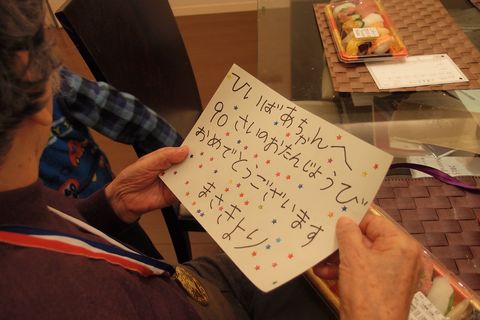 ひいばあちゃんへ
90さいのおたんじょうび
おめでとうございます
まさきより